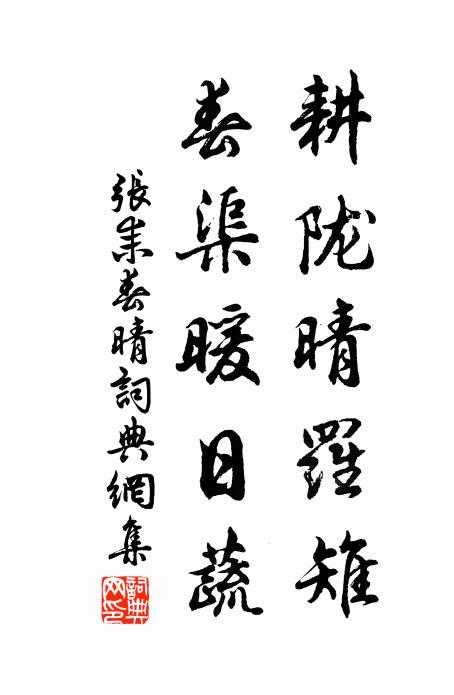 耕陇晴羅雉
春渠暖日蔬
張耒春晴詞典網集
詞典网印